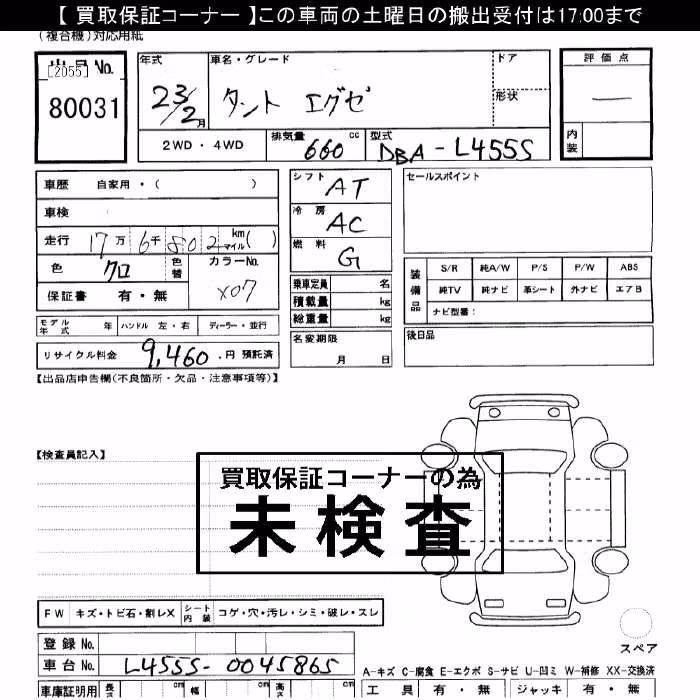 【 買取保証コーナー 】この車両の土曜日の搬出受付は17:00まで
(複合機)対応用紙
出品No.
[2055]
80031
年式
23/2月
車名・グレード
タント エグゼ
ドア
形状
評価点
—
内装
2WD・4WD
排気量 660 cc
型式 DBA-L455S
車歴 自家用・( )
車検
走行 17万6千802 km マイル( )
色 クロ
色替
カラーNo. X07
保証書 有・無
シフト AT
冷房 AC
燃料 G
乗車定員 名
積載量 kg
総重量 kg
セールスポイント
装備品
S/R 純A/W P/S P/W ABS
純TV 純ナビ 革シート 外ナビ エアB
ナビ型番:
モデル年式 年 ハンドル 左・右 ディーラー・並行
リサイクル料金 9,460.円 預託済
名変期限
月 日
後日品
【出品店申告欄(不良箇所・欠品・注意事項等)】
【検査員記入】
買取保証コーナーの為
未検査
FW キズ・トビ石・割レX シート内装 コゲ・穴・汚レ・シミ・破レ・スレ
登録No.
車台No. L455S-0045865
スペア
A-キズ C-腐食 E-エクボ S-サビ U-凹ミ W-補修 XX-交換済
車庫証明用 長さ cm 幅 cm 高さ cm
工具 有・無 ジャッキ 有・無